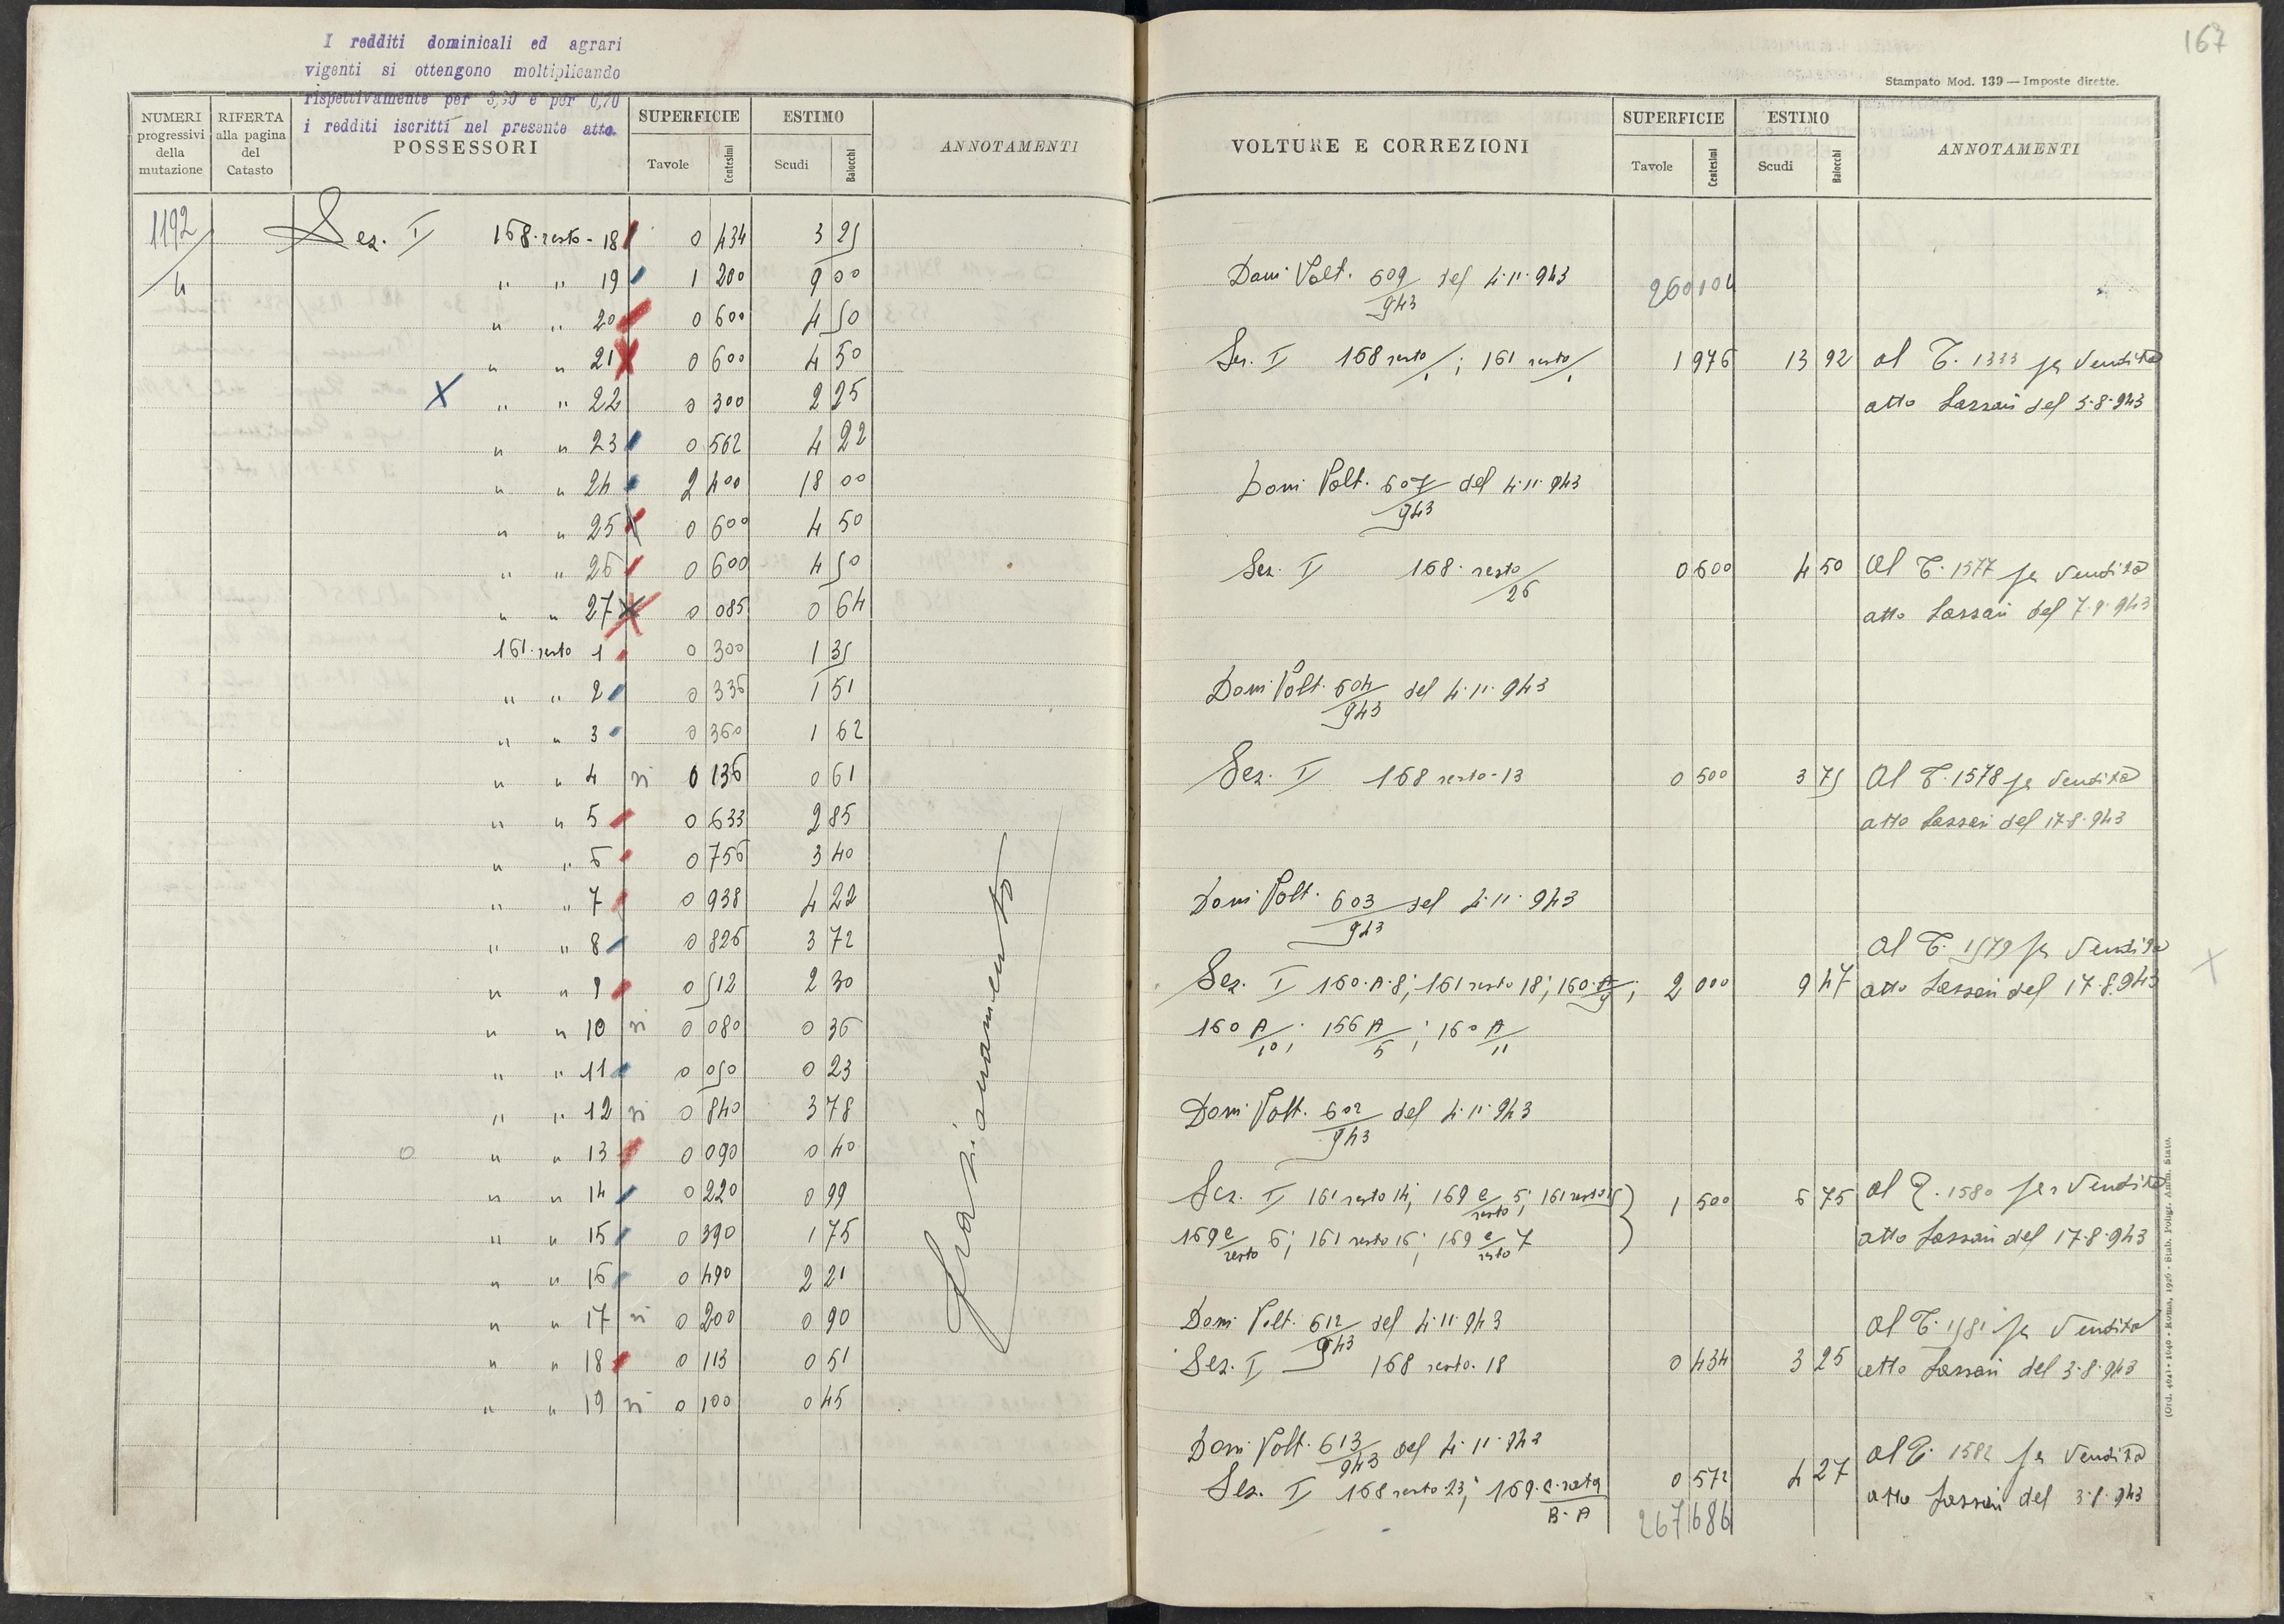 I redditi dominicali ed agrari
vigenti si ottengono moltiplicando
rispettivamente per 3,30 e per 0,70
i redditi iscritti nel presente atto.
NUMERI progressivi della mutazione
RIFERTA alla pagina del Catasto
POSSESSORI
SUPERFICIE
Tavole Centesimi
ESTIMO
Scudi Baiocchi
ANNOTAMENTI
1192/4 Sez. I 168 resto - 18 0 434 3 25
" " 19 1 200 9 00
" " 20 0 600 4 50
" " 21 0 600 4 50
X " " 22 0 300 2 25
" " 23 0 562 4 22
" " 24 2 400 18 00
" " 25 0 600 4 50
" " 26 0 600 4 50
" " 27 0 085 0 64
161 resto 1 0 300 1 35
" " 2 0 336 1 51
" " 3 0 360 1 62
" " 4 si 0 136 0 61
" " 5 0 633 2 85
" " 6 0 756 3 40
" " 7 0 938 4 22
" " 8 0 826 3 72
" " 9 0 512 2 30
" " 10 si 0 080 0 36
" " 11 0 050 0 23
" " 12 si 0 840 3 78
" " 13 0 090 0 40
" " 14 0 220 0 99
" " 15 0 390 1 75
" " 16 0 490 2 21
" " 17 si 0 200 0 90
" " 18 0 113 0 51
" " 19 si 0 100 0 45
frazionamento
167
Stampato Mod. 139 — Imposte dirette.
VOLTURE E CORREZIONI
SUPERFICIE
Tavole Centesimi
ESTIMO
Scudi Baiocchi
ANNOTAMENTI
Dom Volt. 609/943 del 4.11.943 260 104
Sez. I 168 resto/1; 161 resto/1 1 976 13 92 al T. 1333 per Vendita
atto Lassari del 3.8.943
Dom Volt. 607/943 del 4.11.943
Sez. I 168 resto/26 0 600 4 50 al T. 1577 per Vendita
atto Lassari del 7.9.943
Dom Volt. 604/943 del 4.11.943
Sez. I 168 resto-13 0 500 3 75 al T. 1578 per Vendita
atto Lassari del 17.8.943
Dom Volt. 603/943 del 4.11.943
al T. 1579 per Vendita
Sez. I 160.A.8; 161 resto 18; 160.A/9; 2 000 9 47 atto Lassari del 17.8.943
160 A/10; 156 A/5; 160 A/11
Dom Volt. 602/943 del 4.11.943
Sez. I 161 resto 14; 169 e/resto 5; 161 resto 15 1 500 6 75 al T. 1580 per Vendita
169 e/resto 6; 161 resto 16; 169 e/resto 7 atto Lassari del 17.8.943
Dom Volt. 612/943 del 4.11.943 al T. 1581 per Vendita
Sez. I 168 resto. 18 0 434 3 25 atto Lassari del 3.8.943
Dom Volt. 613/943 del 4.11.943 al T. 1582 per Vendita
Sez. I 168 resto 23; 169. C. rata/B.A 0 572 4 27 atto Lassari del 3.8.943
267 686